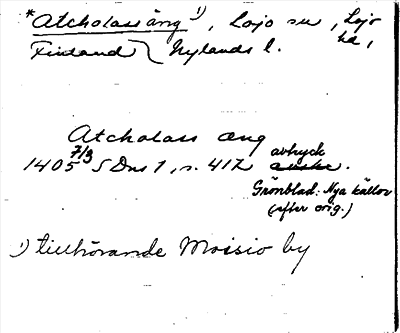 *Atcholass äng 1), Lojo sn, Lojo
Finland Nylands l. hd,
Atcholass æng
1405 7/3 SDns 1, s. 412 avtryck.
Grönblad: Nya källor
(efter orig.)
1) tillhörande Moisio by